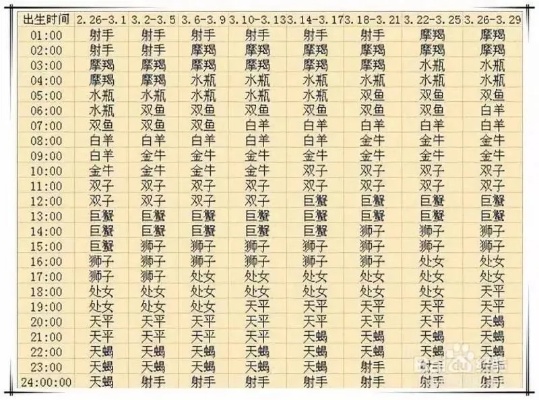 出生时间 2.26-3.1 3.2-3.5 3.6-3.9 3.10-3.13 3.14-3.17 3.18-3.21 3.22-3.25 3.26-3.29
01:00 射手 射手 射手 射手 射手 射手 摩羯 摩羯
02:00 射手 射手 摩羯 摩羯 摩羯 摩羯 摩羯 摩羯
03:00 摩羯 摩羯 摩羯 摩羯 摩羯 摩羯 水瓶 水瓶
04:00 摩羯 摩羯 摩羯 水瓶 水瓶 水瓶 水瓶 水瓶
05:00 水瓶 水瓶 水瓶 水瓶 水瓶 双鱼 双鱼 双鱼
06:00 水瓶 双鱼 双鱼 双鱼 双鱼 双鱼 双鱼 白羊
07:00 双鱼 双鱼 双鱼 白羊 白羊 白羊 白羊 白羊
08:00 白羊 白羊 白羊 白羊 白羊 金牛 金牛 金牛
09:00 白羊 金牛 金牛 金牛 金牛 金牛 金牛 金牛
10:00 金牛 金牛 金牛 金牛 双子 双子 双子 双子
11:00 双子 双子 双子 双子 双子 双子 双子 双子
12:00 双子 双子 双子 双子 巨蟹 巨蟹 巨蟹 巨蟹
13:00 巨蟹 巨蟹 巨蟹 巨蟹 巨蟹 巨蟹 巨蟹 巨蟹
14:00 巨蟹 巨蟹 巨蟹 巨蟹 巨蟹 狮子 狮子 狮子
15:00 巨蟹 狮子 狮子 狮子 狮子 狮子 狮子 狮子
16:00 狮子 狮子 狮子 狮子 狮子 狮子 处女 处女
17:00 狮子 狮子 处女 处女 处女 处女 处女 处女
18:00 处女 处女 处女 处女 处女 处女 处女 天平
19:00 处女 处女 处女 天平 天平 天平 天平 天平
20:00 天平 天平 天平 天平 天平 天平 天平 天蝎
21:00 天平 天平 天平 天平 天蝎 天蝎 天蝎 天蝎
22:00 天蝎 天蝎 天蝎 天蝎 天蝎 天蝎 天蝎
23:00 天蝎 天蝎 天蝎 天蝎 天蝎 射手 射手
24:00:00 天蝎 射手 射手 射手 射手 射手 射手 射手